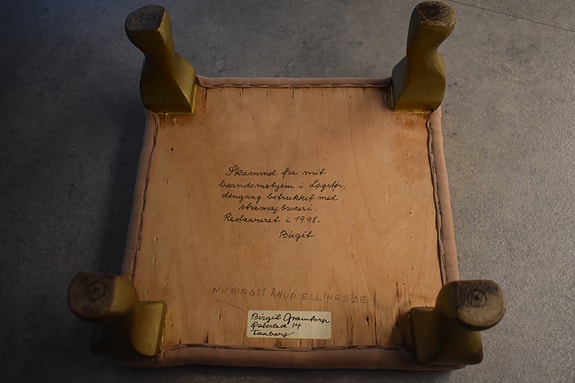 Skammel fra mit
barndomshjem i Løgstør,
dengang betrukket med
stramajbroderi.
Restaureret i 1998.
Birgit
NU BIRGIT ÅRUP ELLINGSØE
Birgit
Østerled 14
Faaborg